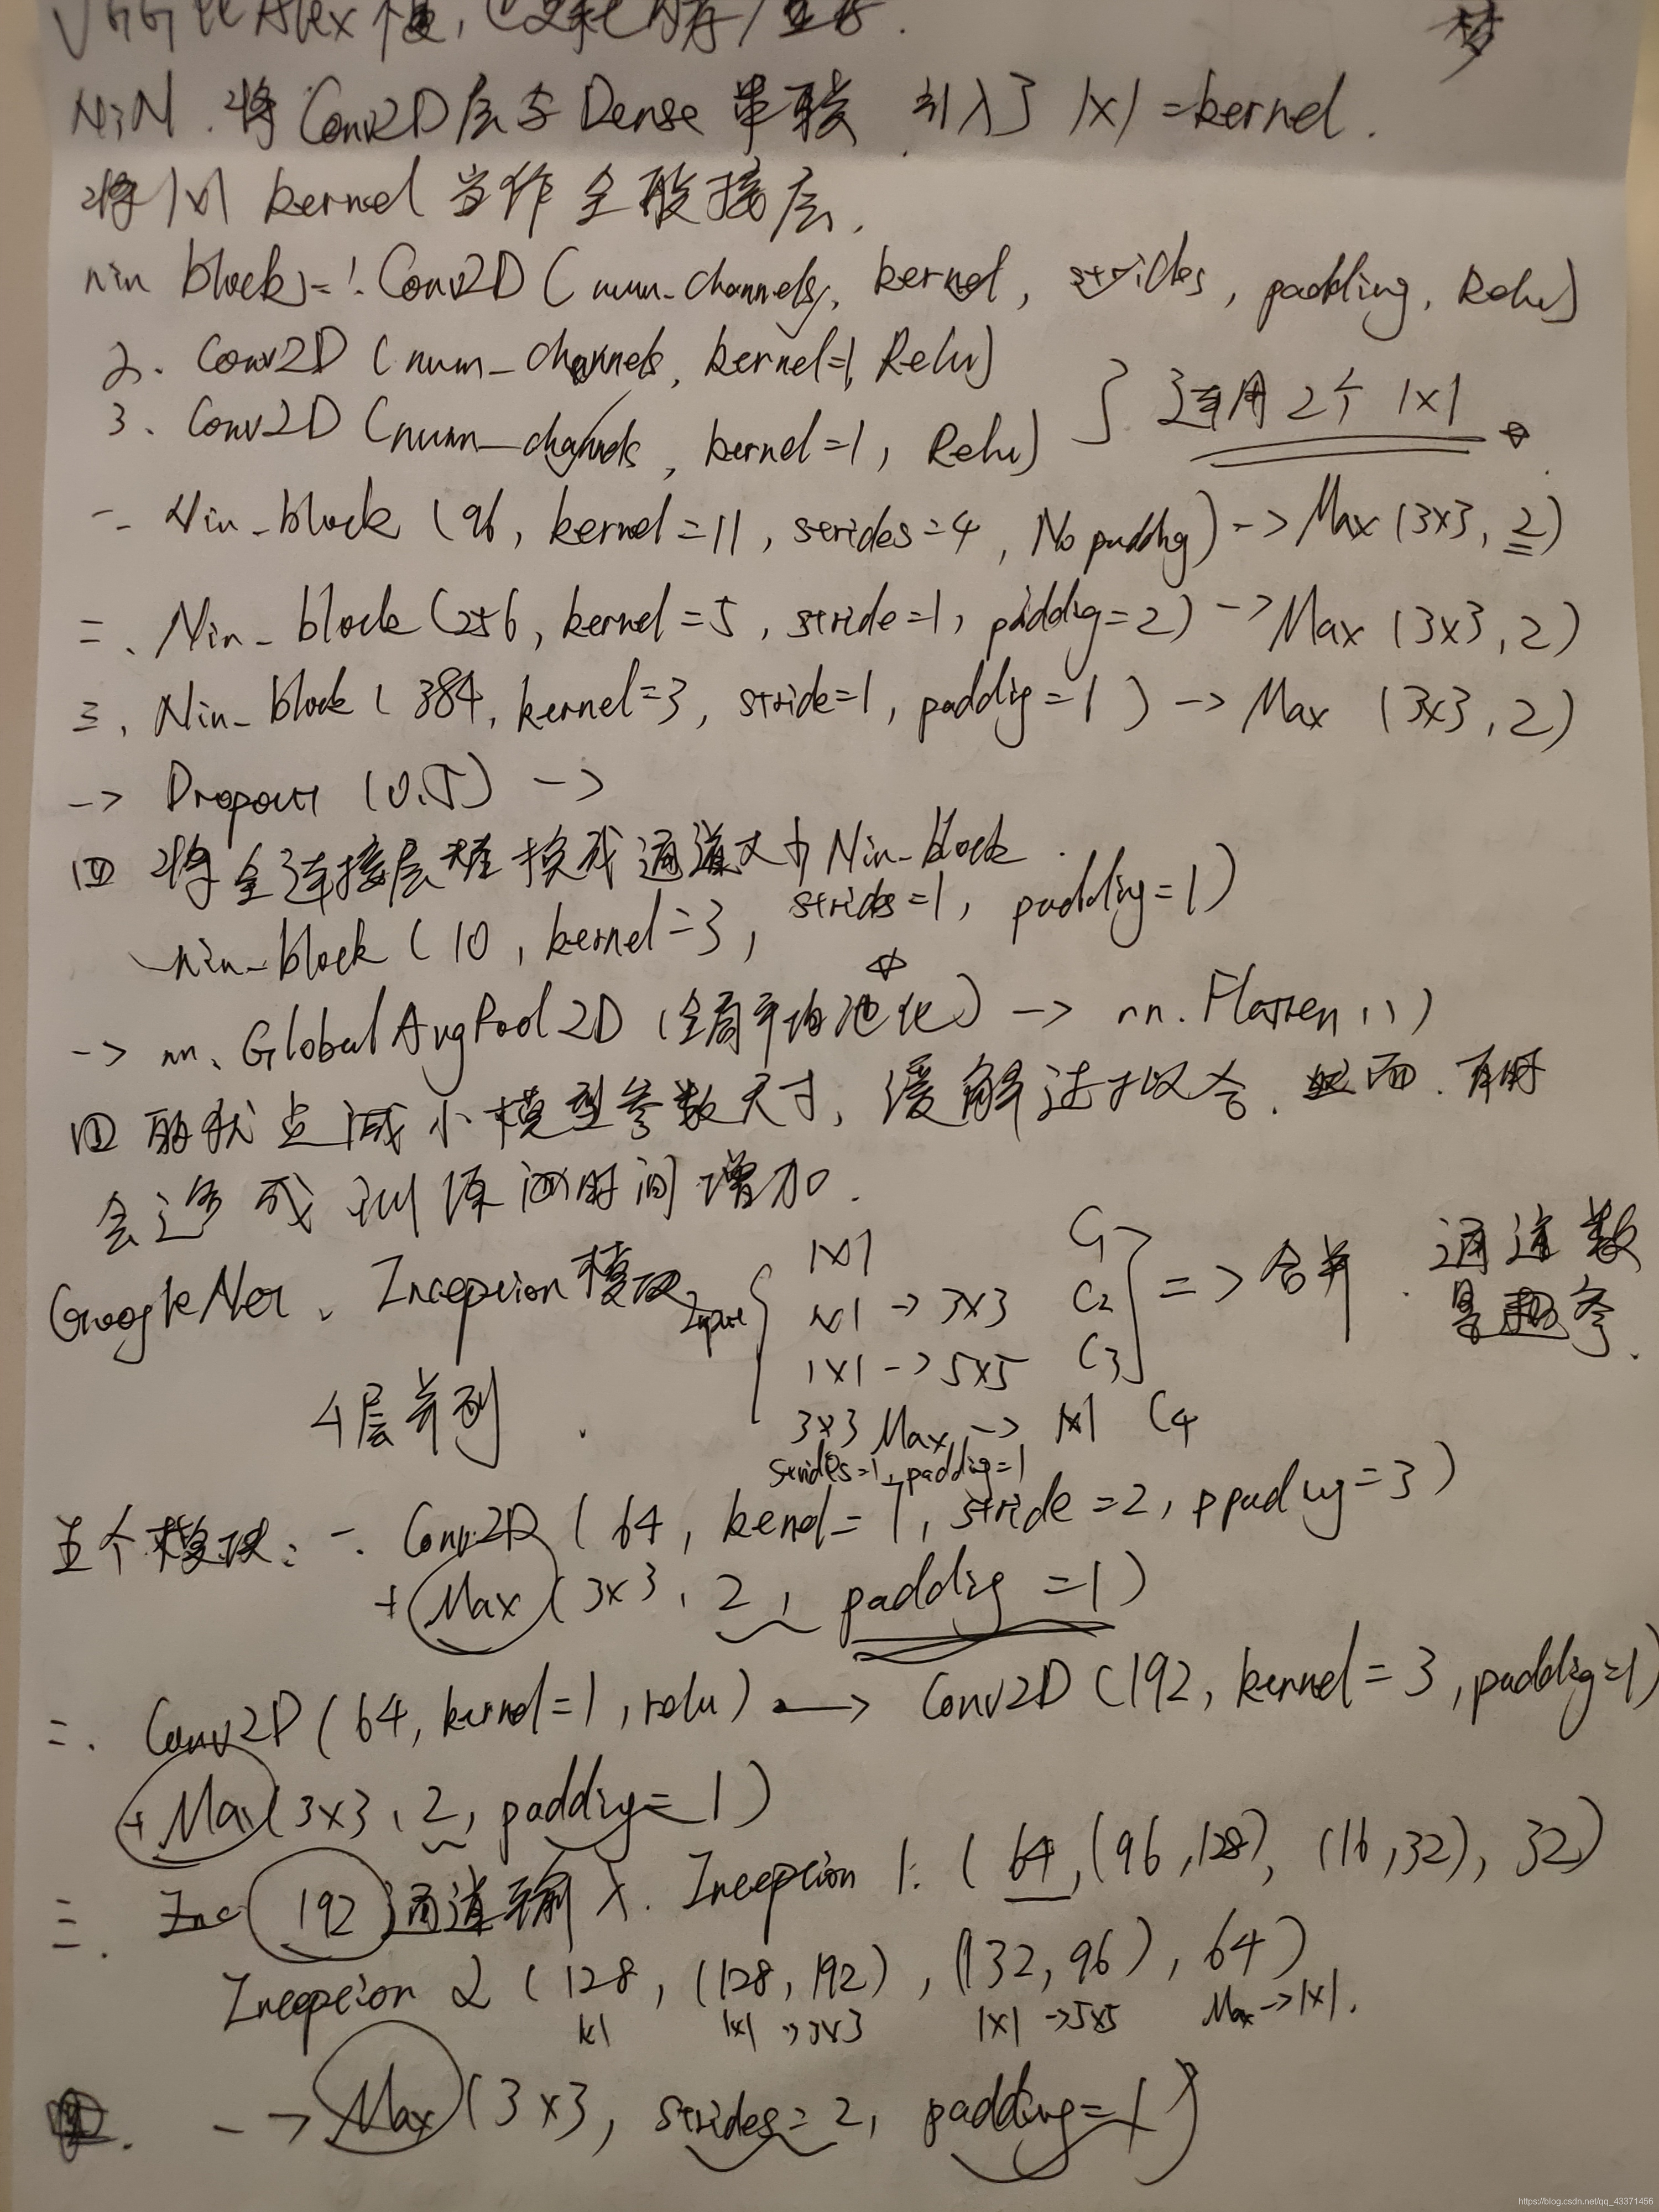 NiN.将Conv2D层与Dense串联,引入了1x1=kernel.
将1x1 kernel当作全连接层.
nin block:=1.Conv2D(num-channels,kernel,strides,padding,Relu)
2.Conv2D(num-channels,kernel=1,Relu)
3.Conv2D(num-channels,kernel=1,Relu) } 运用2个1x1
一.Nin-block(96,kernel=11,strides=4,No padding)->Max(3x3,2)
二.Nin-block(256,kernel=5,stride=1,padding=2)->Max(3x3,2)
三.Nin-block(384,kernel=3,stride=1,padding=1)->Max(3x3,2)
->Dropout(0.5)->
四 将全连接层替换成通道 Nin-block.
nin-block(10,kernel=3,strides=1,padding=1)
->nn.GlobalAvgPool2D(全局平均池化)->nn.Flatten()
四的 点减小模型参数尺寸,缓解过拟合.然而.有时
会造成训练 时间增加.
GoogleNet、Inception模块 Input { 1x1 C1
1x1->3x3 C2
1x1->5x5 C3 } =>合并.通道数
是超参.
4层并列.
3x3 Max->1x1 C4
strides=1,padding=1
五个模块:一.Conv2D(64,kernel=7,stride=2,ppadding=3)
+Max(3x3,2,padding=1)
二.Conv2D(64,kernel=1,relu)->Conv2D(192,kernel=3,padding=1)
+Max(3x3,2,padding=1)
三.Inc 192通道输入.Inception 1:(64,(96,128),(16,32),32)
Inception 2(128,(128,192),(132,96),64)
1x1 1x1->3x3 1x1->5x5 Max->1x1.
-->Max(3x3,strides=2,padding=1)
https://blog.csdn.net/qq_43371456